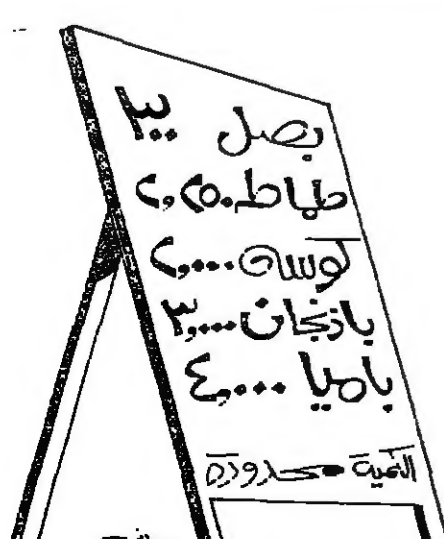 بصل ٣٠٠
طماطه ٢,٢٥٠
كوسه ٢,٠٠٠
باذنجان ٣,٠٠٠
باميا ٤,٠٠٠
الكمية محدوده